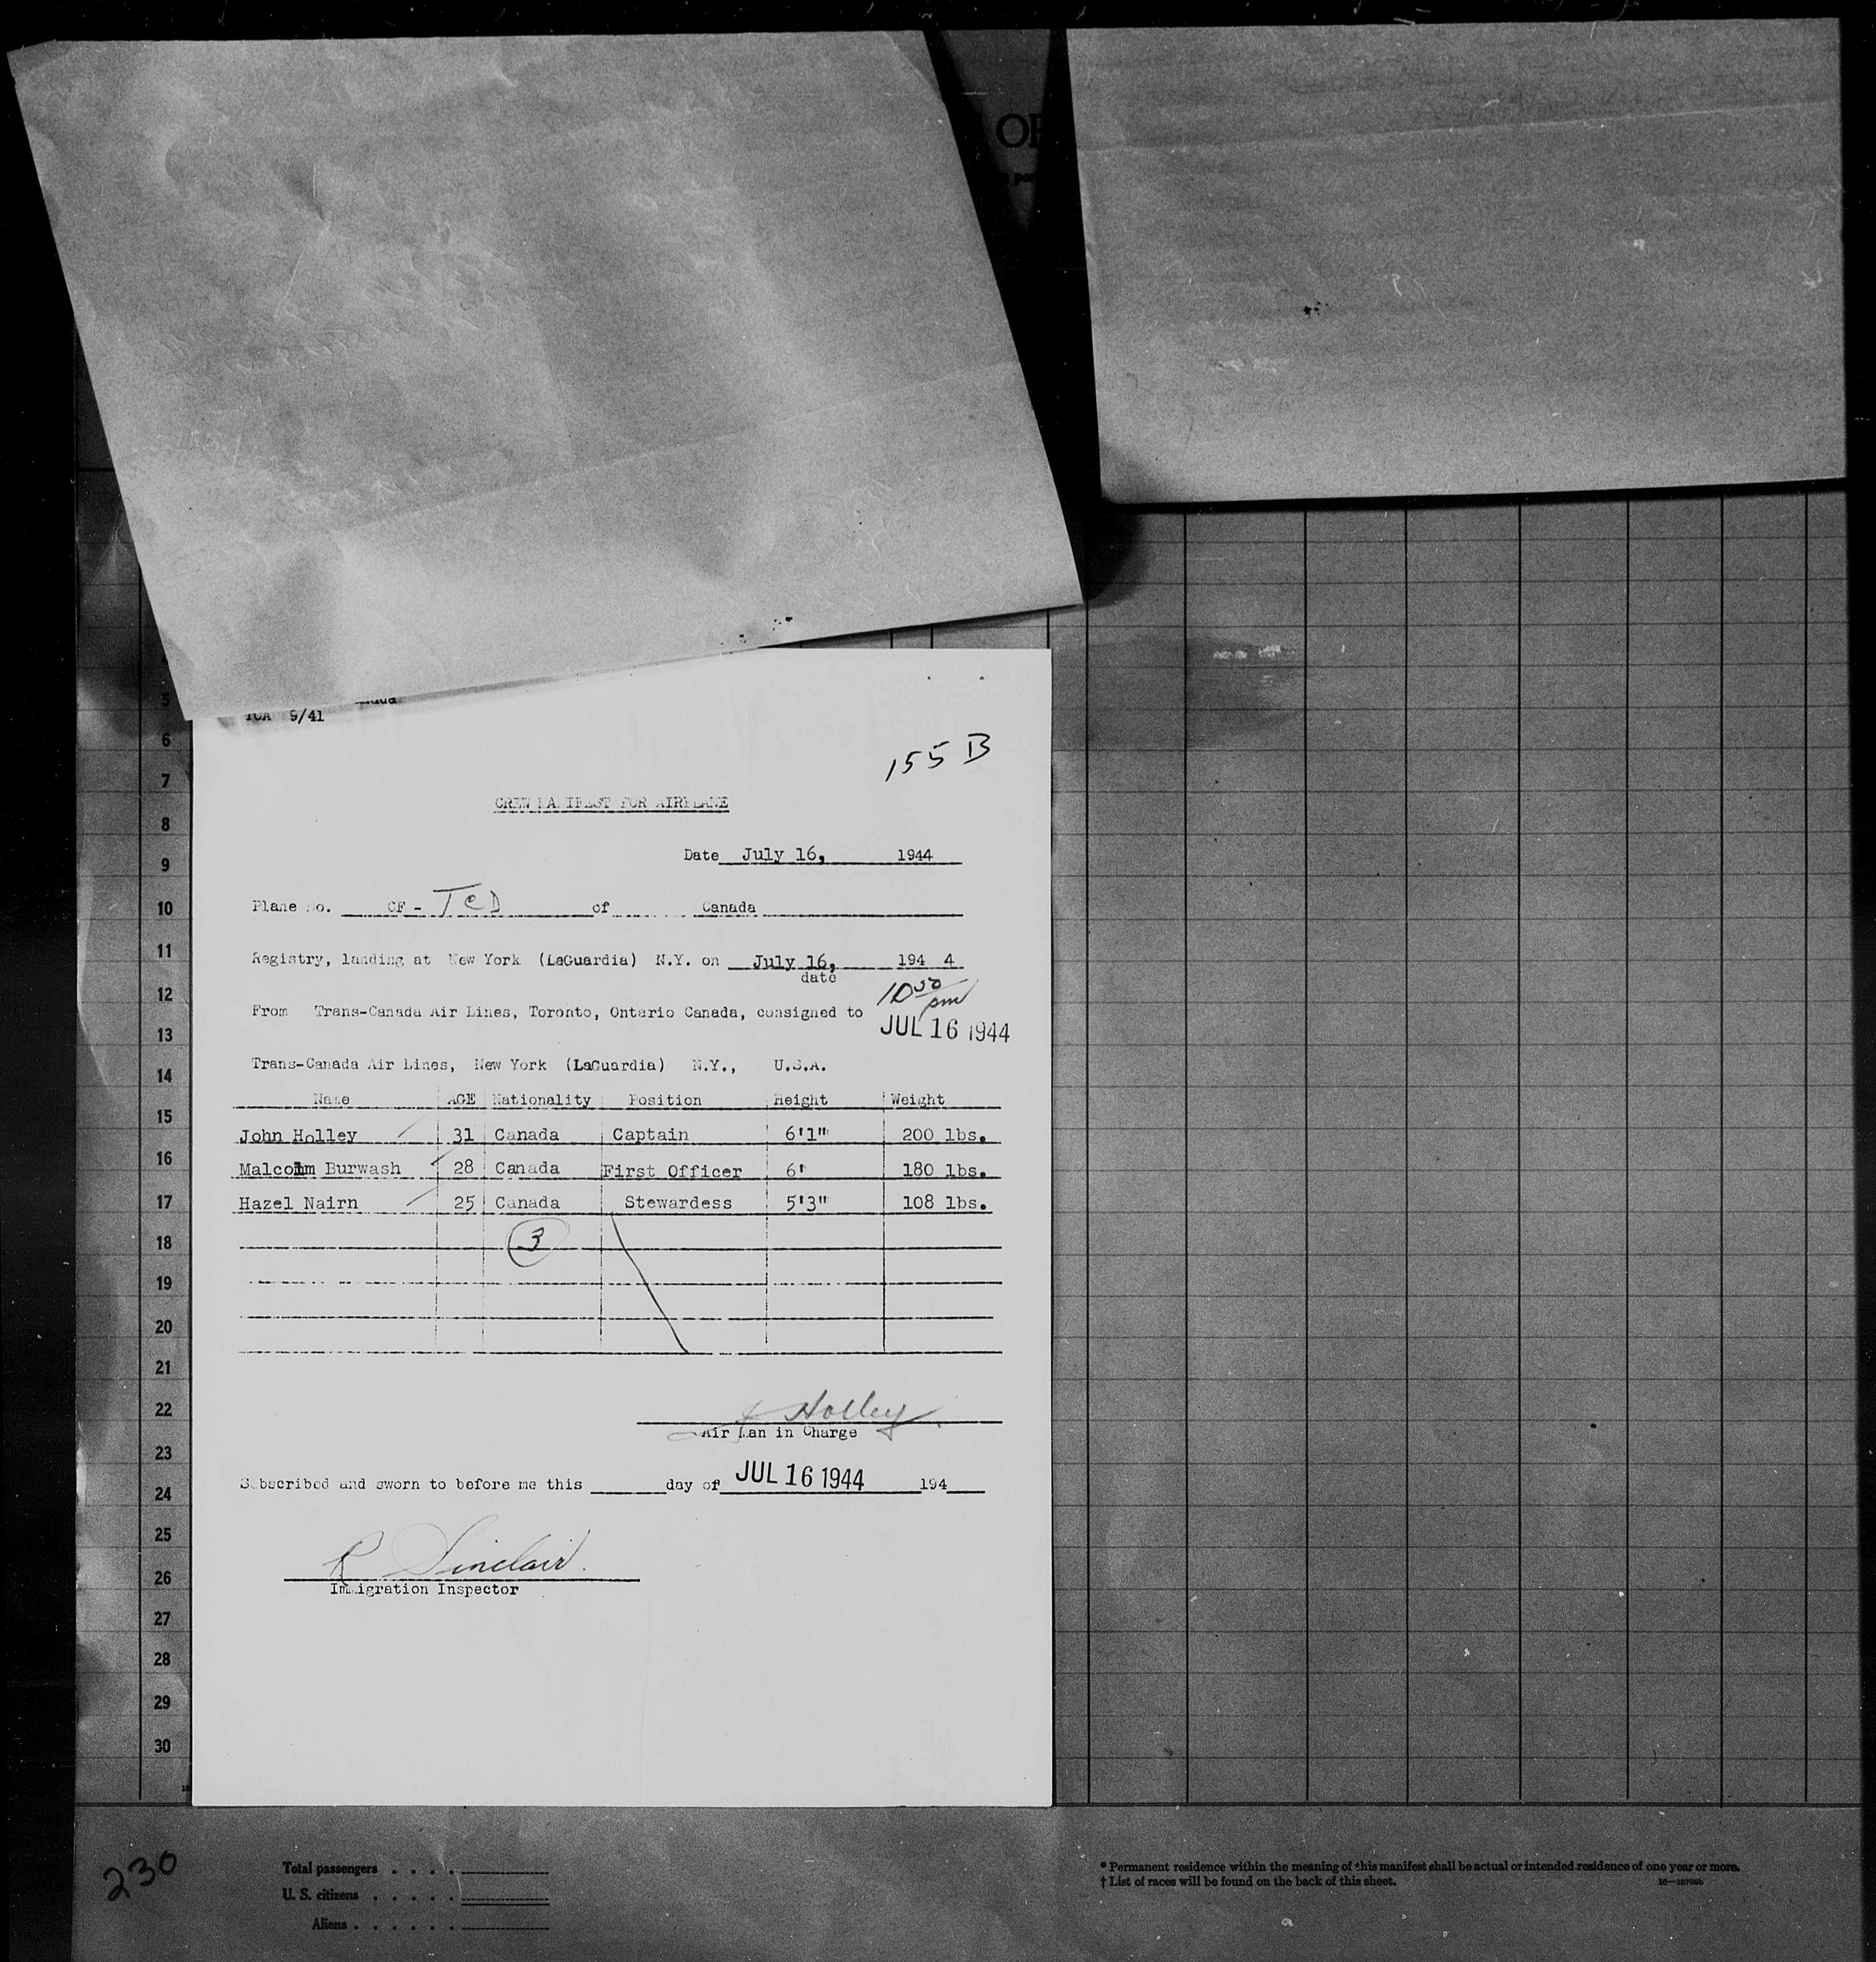 OF
TCA 9/41
155 B
CREW MANIFEST FOR AIRPLANE
Date July 16, 1944
Plane No. CF - TCD of Canada
Registry, landing at New York (LaGuardia) N.Y. on July 16, 194 4
date
10 30 pm
From Trans-Canada Air Lines, Toronto, Ontario Canada, consigned to
JUL 16 1944
Trans-Canada Air Lines, New York (LaGuardia) N.Y., U.S.A.
Name AGE Nationality Position Height Weight
John Holley 31 Canada Captain 6'1" 200 lbs.
Malcolm Burwash 28 Canada First Officer 6' 180 lbs.
Hazel Nairn 25 Canada Stewardess 5'3" 108 lbs.
3
J Holley
Air Man in Charge
Subscribed and sworn to before me this day of JUL 16 1944 194
R Sinclair.
Immigration Inspector
5
6
7
8
9
10
11
12
13
14
15
16
17
18
19
20
21
22
23
24
25
26
27
28
29
30
230
Total passengers . . . .
U. S. citizens . . . . .
Aliens . . . . . .
* Permanent residence within the meaning of this manifest shall be actual or intended residence of one year or more.
† List of races will be found on the back of this sheet.